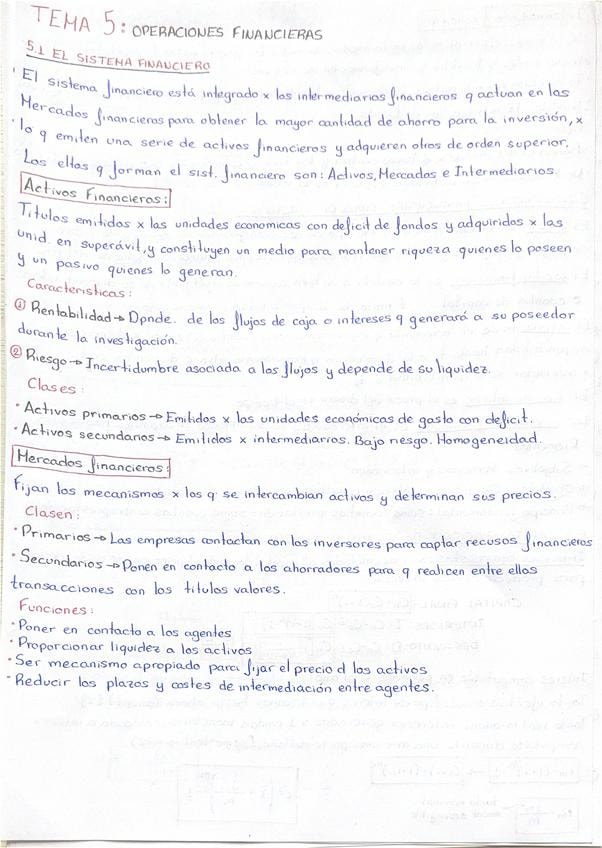 TEMA 5: OPERACIONES FINANCIERAS
5.1 EL SISTEMA FINANCIERO
• El sistema financiero está integrado x los intermediarios financieros q actuan en los
Mercados financieros para obtener la mayor cantidad de ahorro para la inversión, x
• lo q emiten una serie de activos financieros y adquieren otros de orden superior.
Los eltos q forman el sist. financiero son: Activos, Mercados e Intermediarios.
Activos Financieros:
Titulos emitidos x las unidades economicas con deficit de fondos y adquiridos x las
unid. en superávit, y constituyen un medio para mantener riqueza quienes lo poseen
y un pasivo quienes lo generan.
Caracteristicas:
① Rentabilidad → Dpnde. de los flujos de caja o intereses q generará a su poseedor
durante la investigación.
② Riesgo → Incertidumbre asociada a los flujos y depende de su liquidez.
Clases:
• Activos primarios → Emitidos x las unidades económicas de gasto con deficit.
• Activos secundarios → Emitidos x intermediarios. Bajo riesgo. Homogeneidad.
Mercados financieros:
Fijan los mecanismos x los q se intercambian activos y determinan sus precios.
Clasen:
• Primarios → Las empresas contactan con los inversores para captar recusos financieros
• Secundarios → Ponen en contacto a los ahorradores para q realicen entre ellos
transacciones con los titulos valores.
Funciones:
• Poner en contacto a los agentes
• Proporcionar liquidez a los activos
• Ser mecanismo apropiado para fijar el precio d los activos
• Reducir los plazos y costes de intermediación entre agentes.